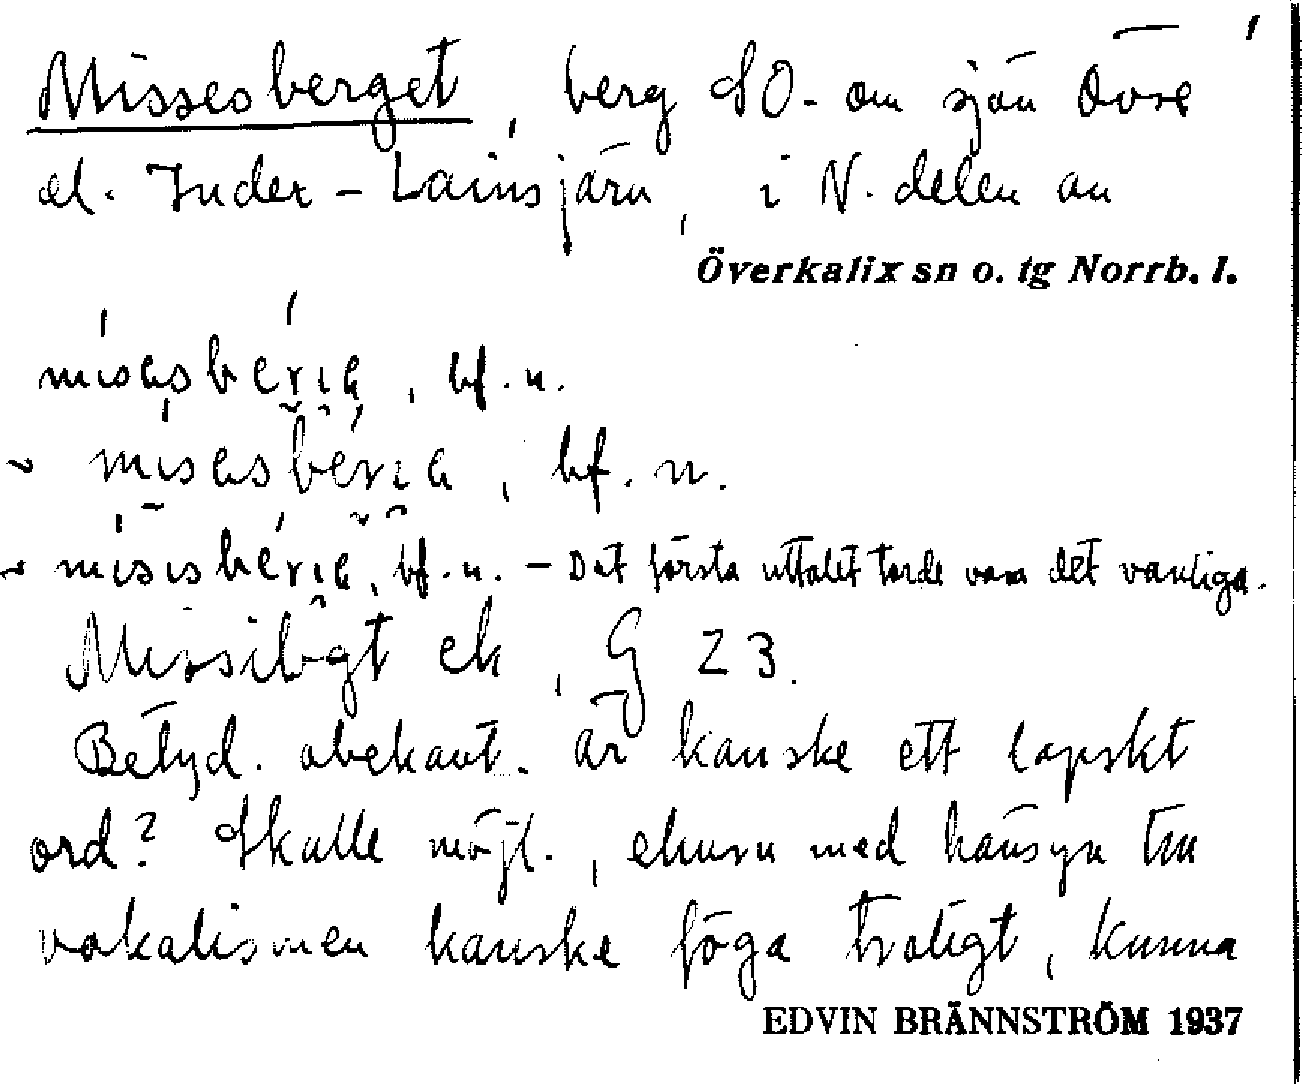 Missesberget, berg SO. om sjön Övre
el. Inder-Lainsjärn, i N. delen av
Överkalix sn o. tg Norrb. l.
bf. n.
~ bf. n.
~ bf. n. – Det första uttalet torde vara det vanliga.
ek, G 23.
Betyd. obekant. är kanske ett lapskt
ord? Skulle möjl., ehuru med hänsyn till
vokalismen kanske föga troligt, kunna
EDVIN BRÄNNSTRÖM 1937